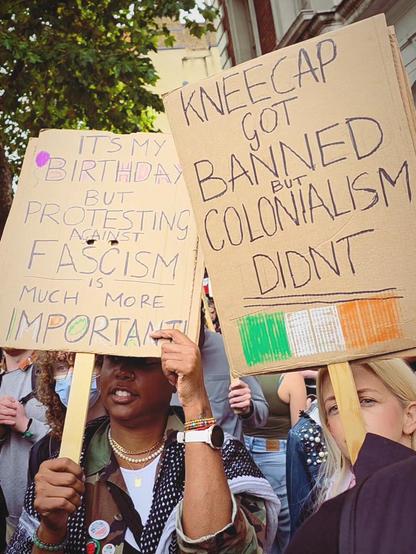 IT'S MY
BIRTHDAY
BUT
PROTESTING
AGAINST
FASCISM
IS
MUCH MORE
IMPORTANT!
KNEECAP
GOT
BANNED
BUT
COLONIALISM
DIDNT